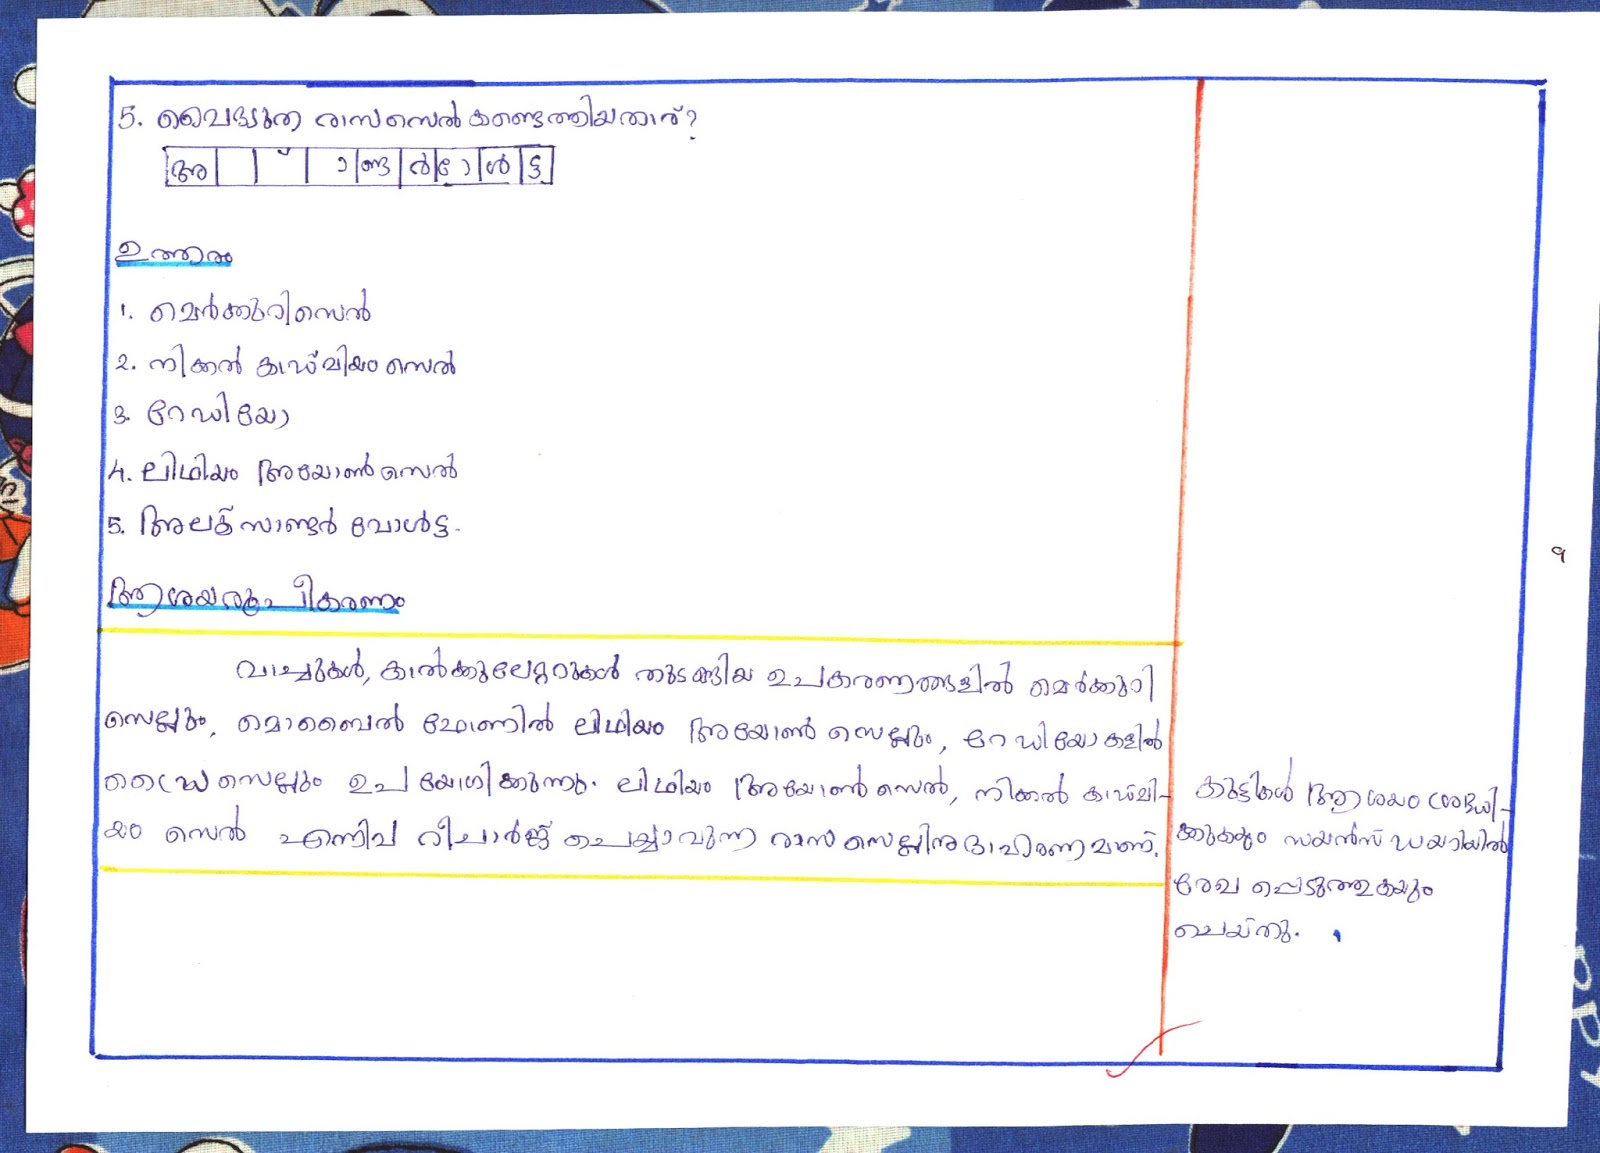 5. വൈദ്യുത രാസസെൽ കണ്ടെത്തിയതാര്?
അ ് ാ ണ്ട ർ ോ ൾ ട്ട
ഉത്തരം
1. മെർക്കുറിസെൽ
2. നിക്കൽ കാഡ്മിയം സെൽ
3. റേഡിയോ
4. ലിഥിയം അയോൺ സെൽ
5. അലക്സാണ്ടർ വോൾട്ട.
ആശയരൂപീകരണം
വാച്ചുകൾ, കാൽക്കുലേറ്ററുകൾ തുടങ്ങിയ ഉപകരണങ്ങളിൽ മെർക്കുറി
സെല്ലും, മൊബൈൽ ഫോണിൽ ലിഥിയം അയോൺ സെല്ലും, റേഡിയോകളിൽ
ഡ്രൈസെല്ലും ഉപയോഗിക്കുന്നു. ലിഥിയം അയോൺ സെൽ, നിക്കൽ കാഡ്മി-
യം സെൽ എന്നിവ റീചാർജ് ചെയ്യാവുന്ന രാസ സെല്ലിനുദാഹരണമാണ്.
കുട്ടികൾ ആശയം ശ്രദ്ധി-
ക്കുകയും സയൻസ് ഡയറിയിൽ
രേഖപ്പെടുത്തുകയും
ചെയ്തു.
9